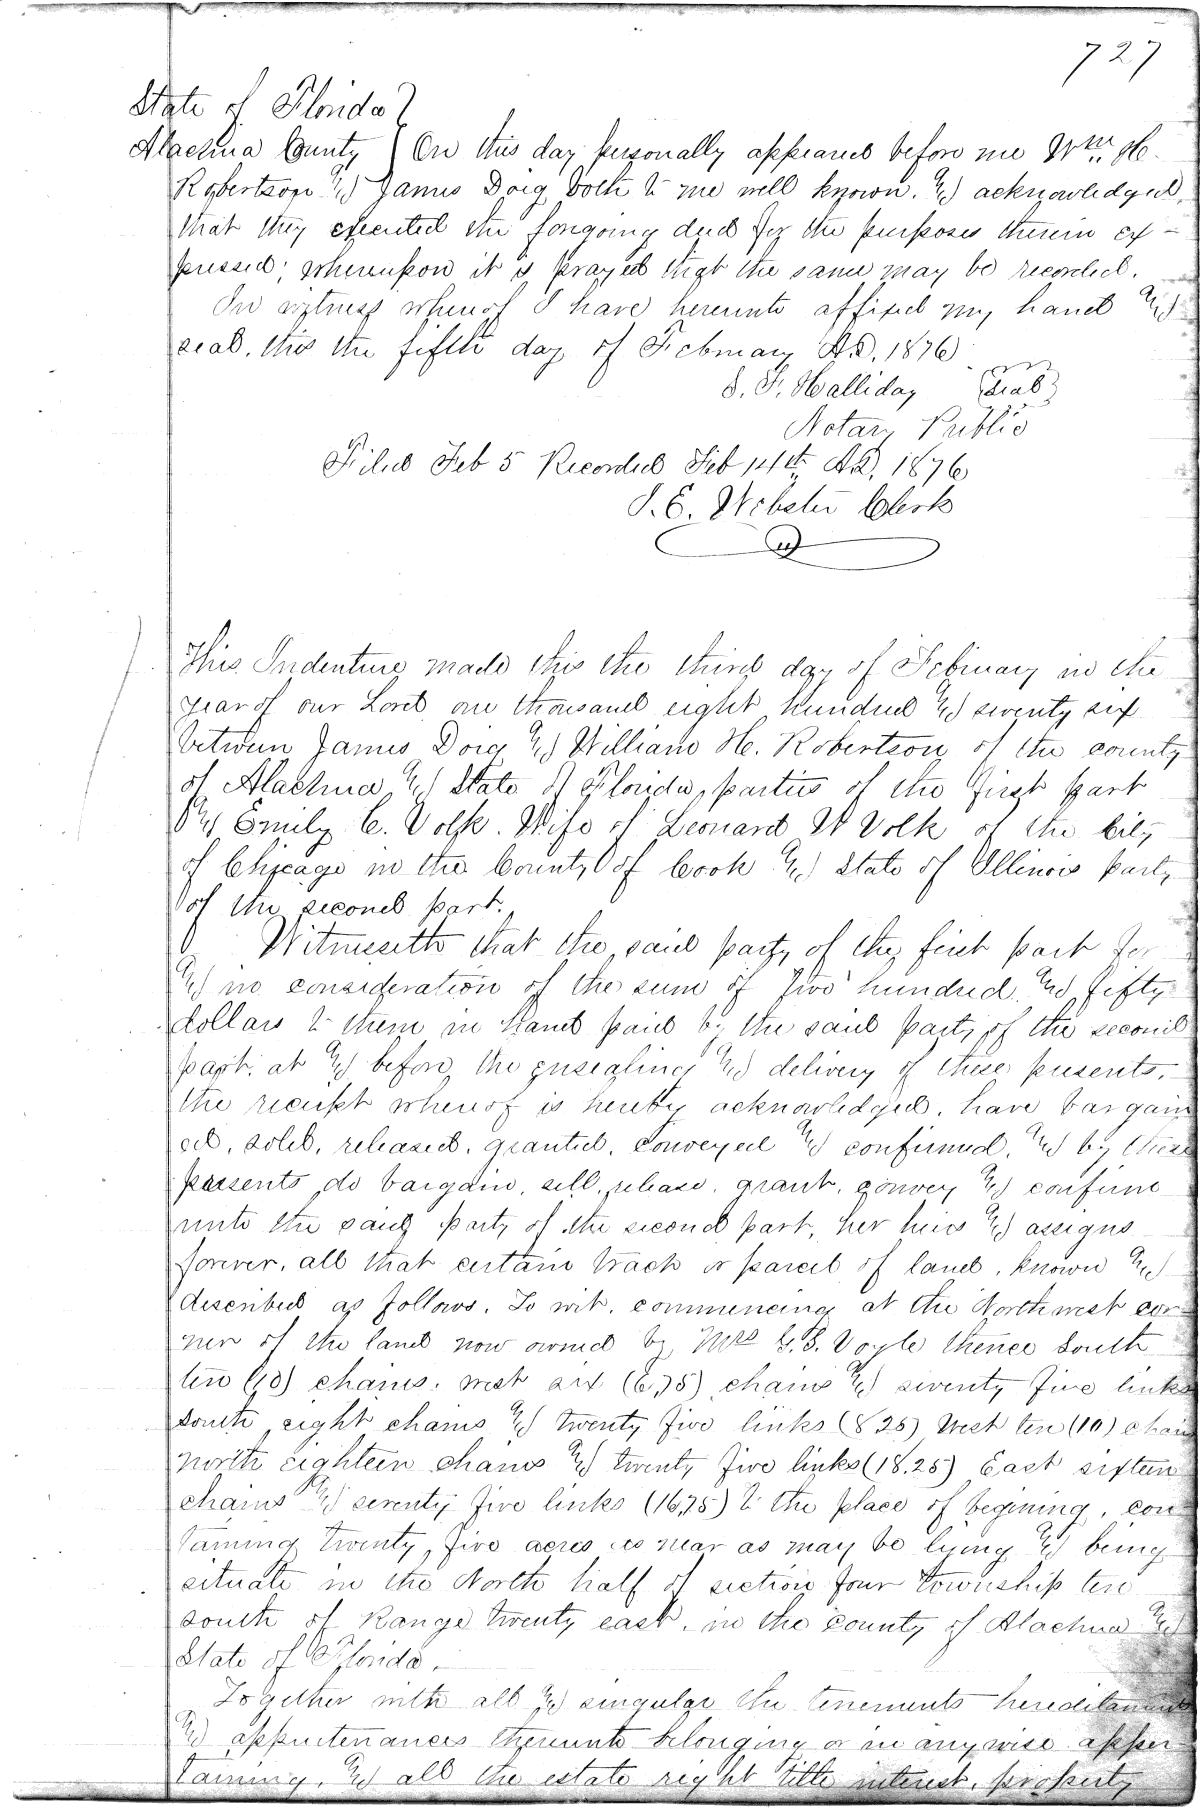 727
State of Florida }
Alachua County } On this day personally appeared before me Wm. H.
Robertson & James Doig both to me well known. & acknowledged,
that they executed the foregoing deed for the purposes therein ex-
pressed; whereupon it is prayed that the same may be recorded.
In witness whereof I have hereunto affixed my hand &
seal. this the fifth day of February A.D. 1876
S. F. Halliday (Seal)
Notary Public
Filed Feb 5 Recorded Feb 14th A.D. 1876
J. E. Webster Clerk
This Indenture made this the third day of February in the
year of our Lord one thousand eight hundred & seventy six
between James Doig & William H. Robertson of the county
of Alachua & State of Florida, parties of the first part
& Emily C. Volk. Wife of Leonard W Volk of the City
of Chicago in the County of Cook & State of Illinois party
of the second part.
Witnesseth that the said party of the first part for
& in consideration of the sum of Two hundred & fifty
dollars to them in hand paid by the said party of the second
part. at & before the ensealing & delivery of these presents.
the receipt whereof is hereby acknowledged. have bargain
ed, sold, released, granted, conveyed & confirmed, & by these
presents do bargain, sell, release, grant, convey & confirm
unto the said party of the second part, her heirs & assigns
forever. all that certain track or parcel of land, known &
described as follows. To wit. commencing at the Northwest cor-
ner of the land now owned by Mrs G. S. Voyle thence South
ten (10) chains. west six (6,75) chains & seventy five links
South eight chains & twenty five links (8 25) West ten (10) chains
north eighteen chains & twenty five links (18.25) East sixteen
chains & seventy five links (16,75) to the place of begining, con-
taining twenty five acres as near as may be lying & being
situate in the North half of section four township ten
south of Range twenty east, in the county of Alachua &
State of Florida.
Together with all & singular the tenements hereditaments
& appurtenances thereunto belonging or in anywise apper
taining, & all the estate right title interest, property